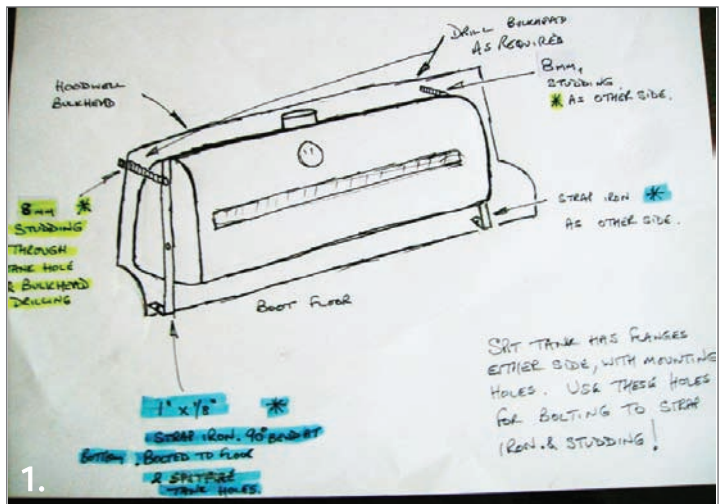 DRILL BULKHEAD
AS REQUIRED
HOODWELL
BULKHEAD
8MM,
STUDDING.
* AS OTHER SIDE.
8MM *
STUDDING
THROUGH
TANK HOLE
& BULKHEAD
DRILLING
STRAP IRON *
AS OTHER SIDE.
BOOT FLOOR
1" x 1/8" *
STRAP IRON. 90° BEND AT
BOTTOM. BOLTED TO FLOOR
& SPITFIRE
TANK HOLES.
SPIT TANK HAS FLANGES
EITHER SIDE, WITH MOUNTING
HOLES. USE THESE HOLES
FOR BOLTING TO STRAP
IRON & STUDDING!
1.